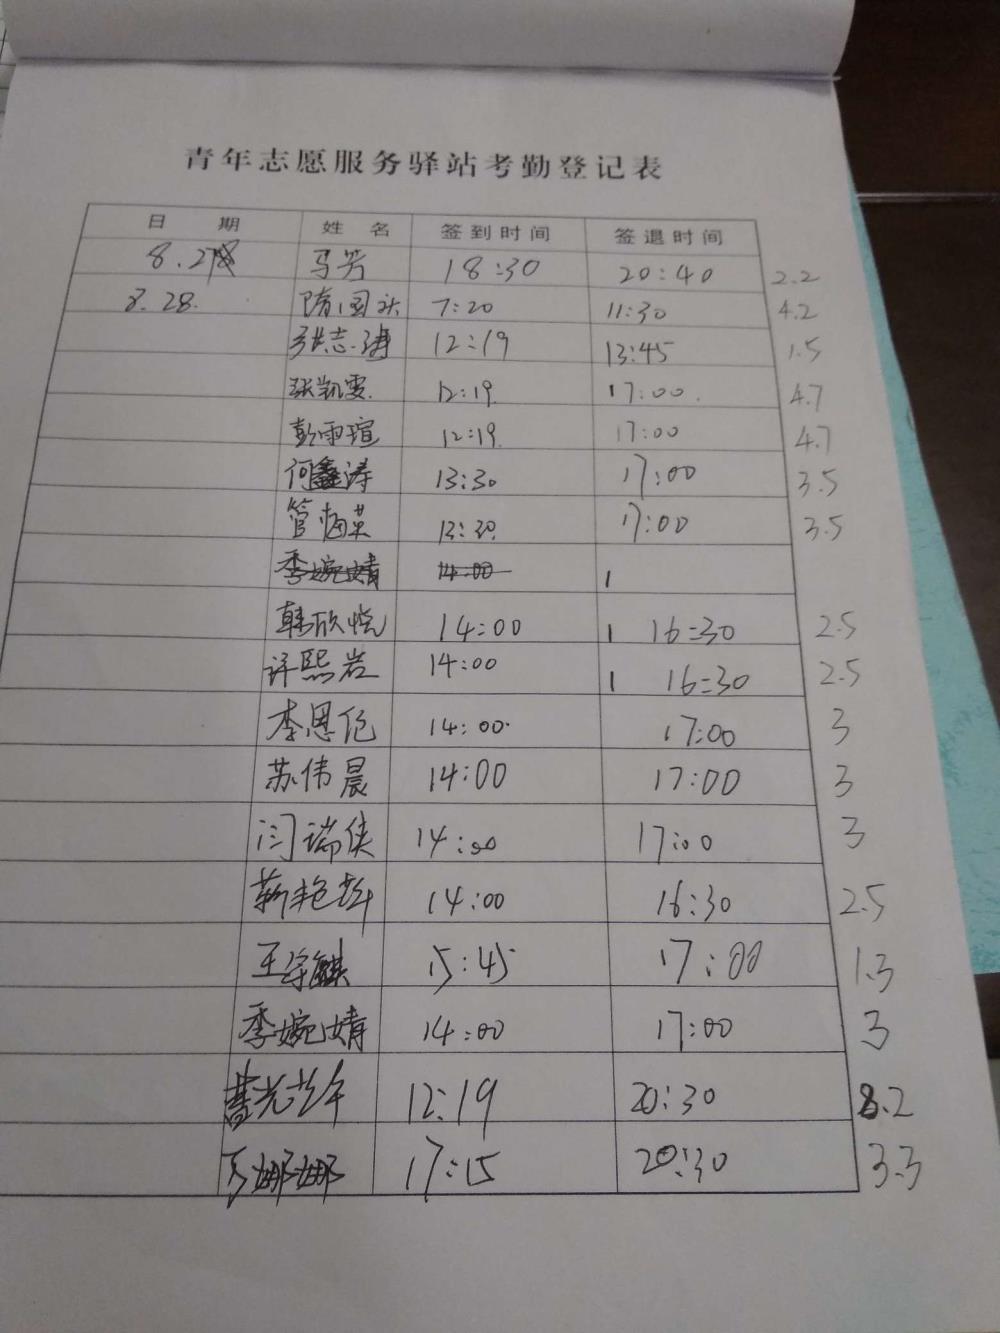 青年志愿服务驿站考勤登记表
日 期 姓 名 签到时间 签退时间
8.27 马芳 18:30 20:40 2.2
8.28. 隋国 7:20 11:30 4.2
张志涛 12:19 13:45 1.5
张凯雯. 12:19. 17:00. 4.7
彭雨瑄 12:19. 17:00 4.7
何鑫涛 13:30 17:00 3.5
管梅英 13:30 17:00 3.5
季婉婧 14:00
韩欣悦 14:00 16:30 2.5
许熙岩 14:00 16:30 2.5
李恩伦 14:00 17:00 3
苏伟晨 14:00 17:00 3
闫瑞侠 14:00 17:00 3
靳艳辉 14:00 16:30 2.5
王宗麒 15:45 17:00 1.3
季婉婧 14:00 17:00 3
光 12:19 20:30 8.2
马娜娜 17:15 20:30 3.3